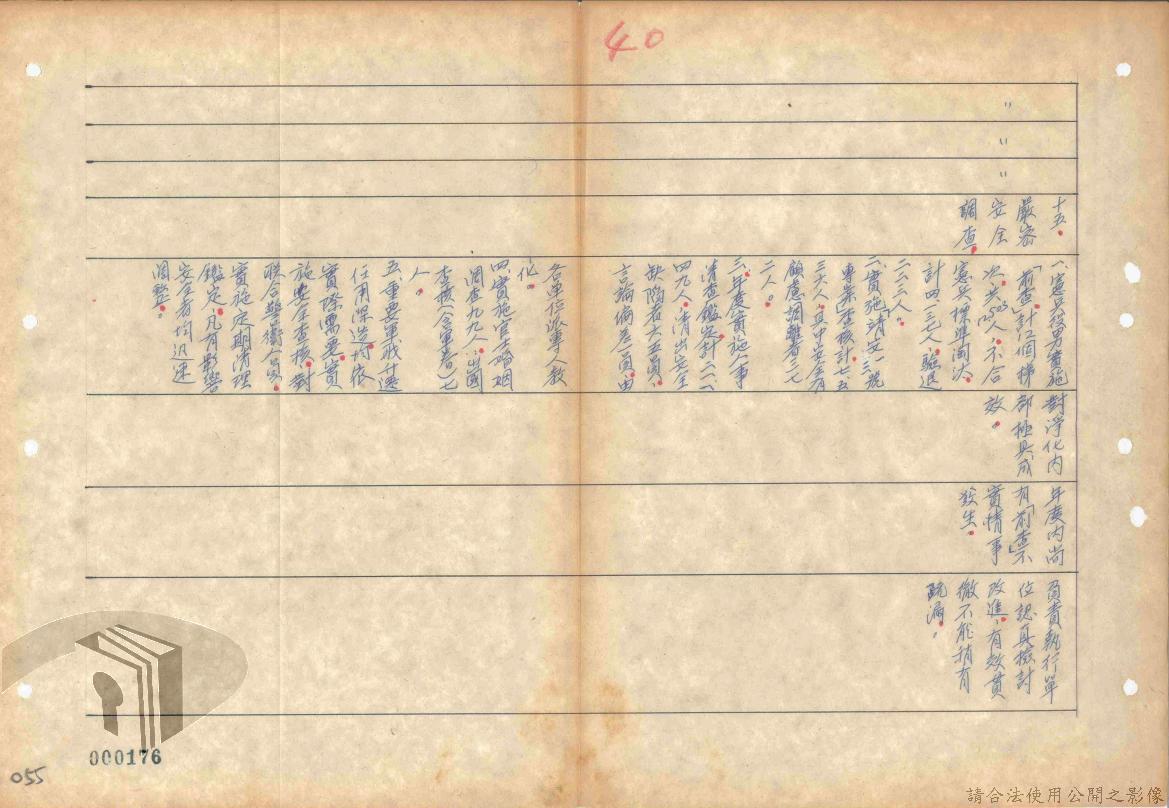 40
〃
〃
〃
十五。
嚴密
安全
調查。
一、憲兵役男實施
「前查」計12個梯
次。共
人,不合
憲兵標準淘汰
計四、三七人,驅退
二、三三人。
二、實施「靖文一三號
專案」查核計七五
三六人,其中安全有
顧慮調整者三七
二人。
三、年度實施人事
清查鑑定計二一、一
四九人,清出安全
缺陷者六五員,
言論偏差一員,由
各單位派專人教
化。
四、實施官士婚姻
調查九九人,出國
查核(含軍眷)一七
人。
五、重要軍職升遷
任用深造均依
實際需要實
施安全查核,對
聯合警衛人員
實施定期清理
鑑定,凡有影響
安全者均迅速
調整。
對淨化內
部極具成
效。
年度內尚
有「前查」不
實情事
發生。
負責執行單
位認真檢討
改進,有效貫
徹不能稍有
疏漏。
000176
055
請合法使用公開之影像